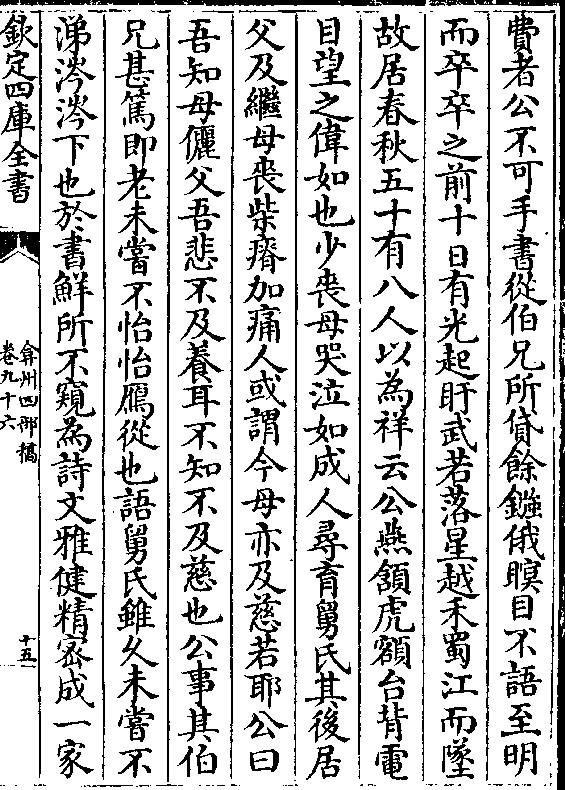 費者公不可手書從伯兄所貸餘鏹俄瞑目不語至明
而卒卒之前十日有光起盱武若落星越禾蜀江而墜
故居春秋五十有八人以為祥云公燕頷虎額台背電
目望之偉如也少喪母哭泣如成人尋育舅氏其後居
父及繼母喪柴瘠加痛人或謂今母亦及慈若耶公曰
吾知母儷父吾悲不及養耳不知不及慈也公事其伯
兄甚篤即老未嘗不怡怡鴈從也語舅氏雖久未嘗不
涕涔涔下也於書鮮所不窺為詩文雅健精宻成一家
欽定四庫全書
弇州四部稿
卷九十六
十五